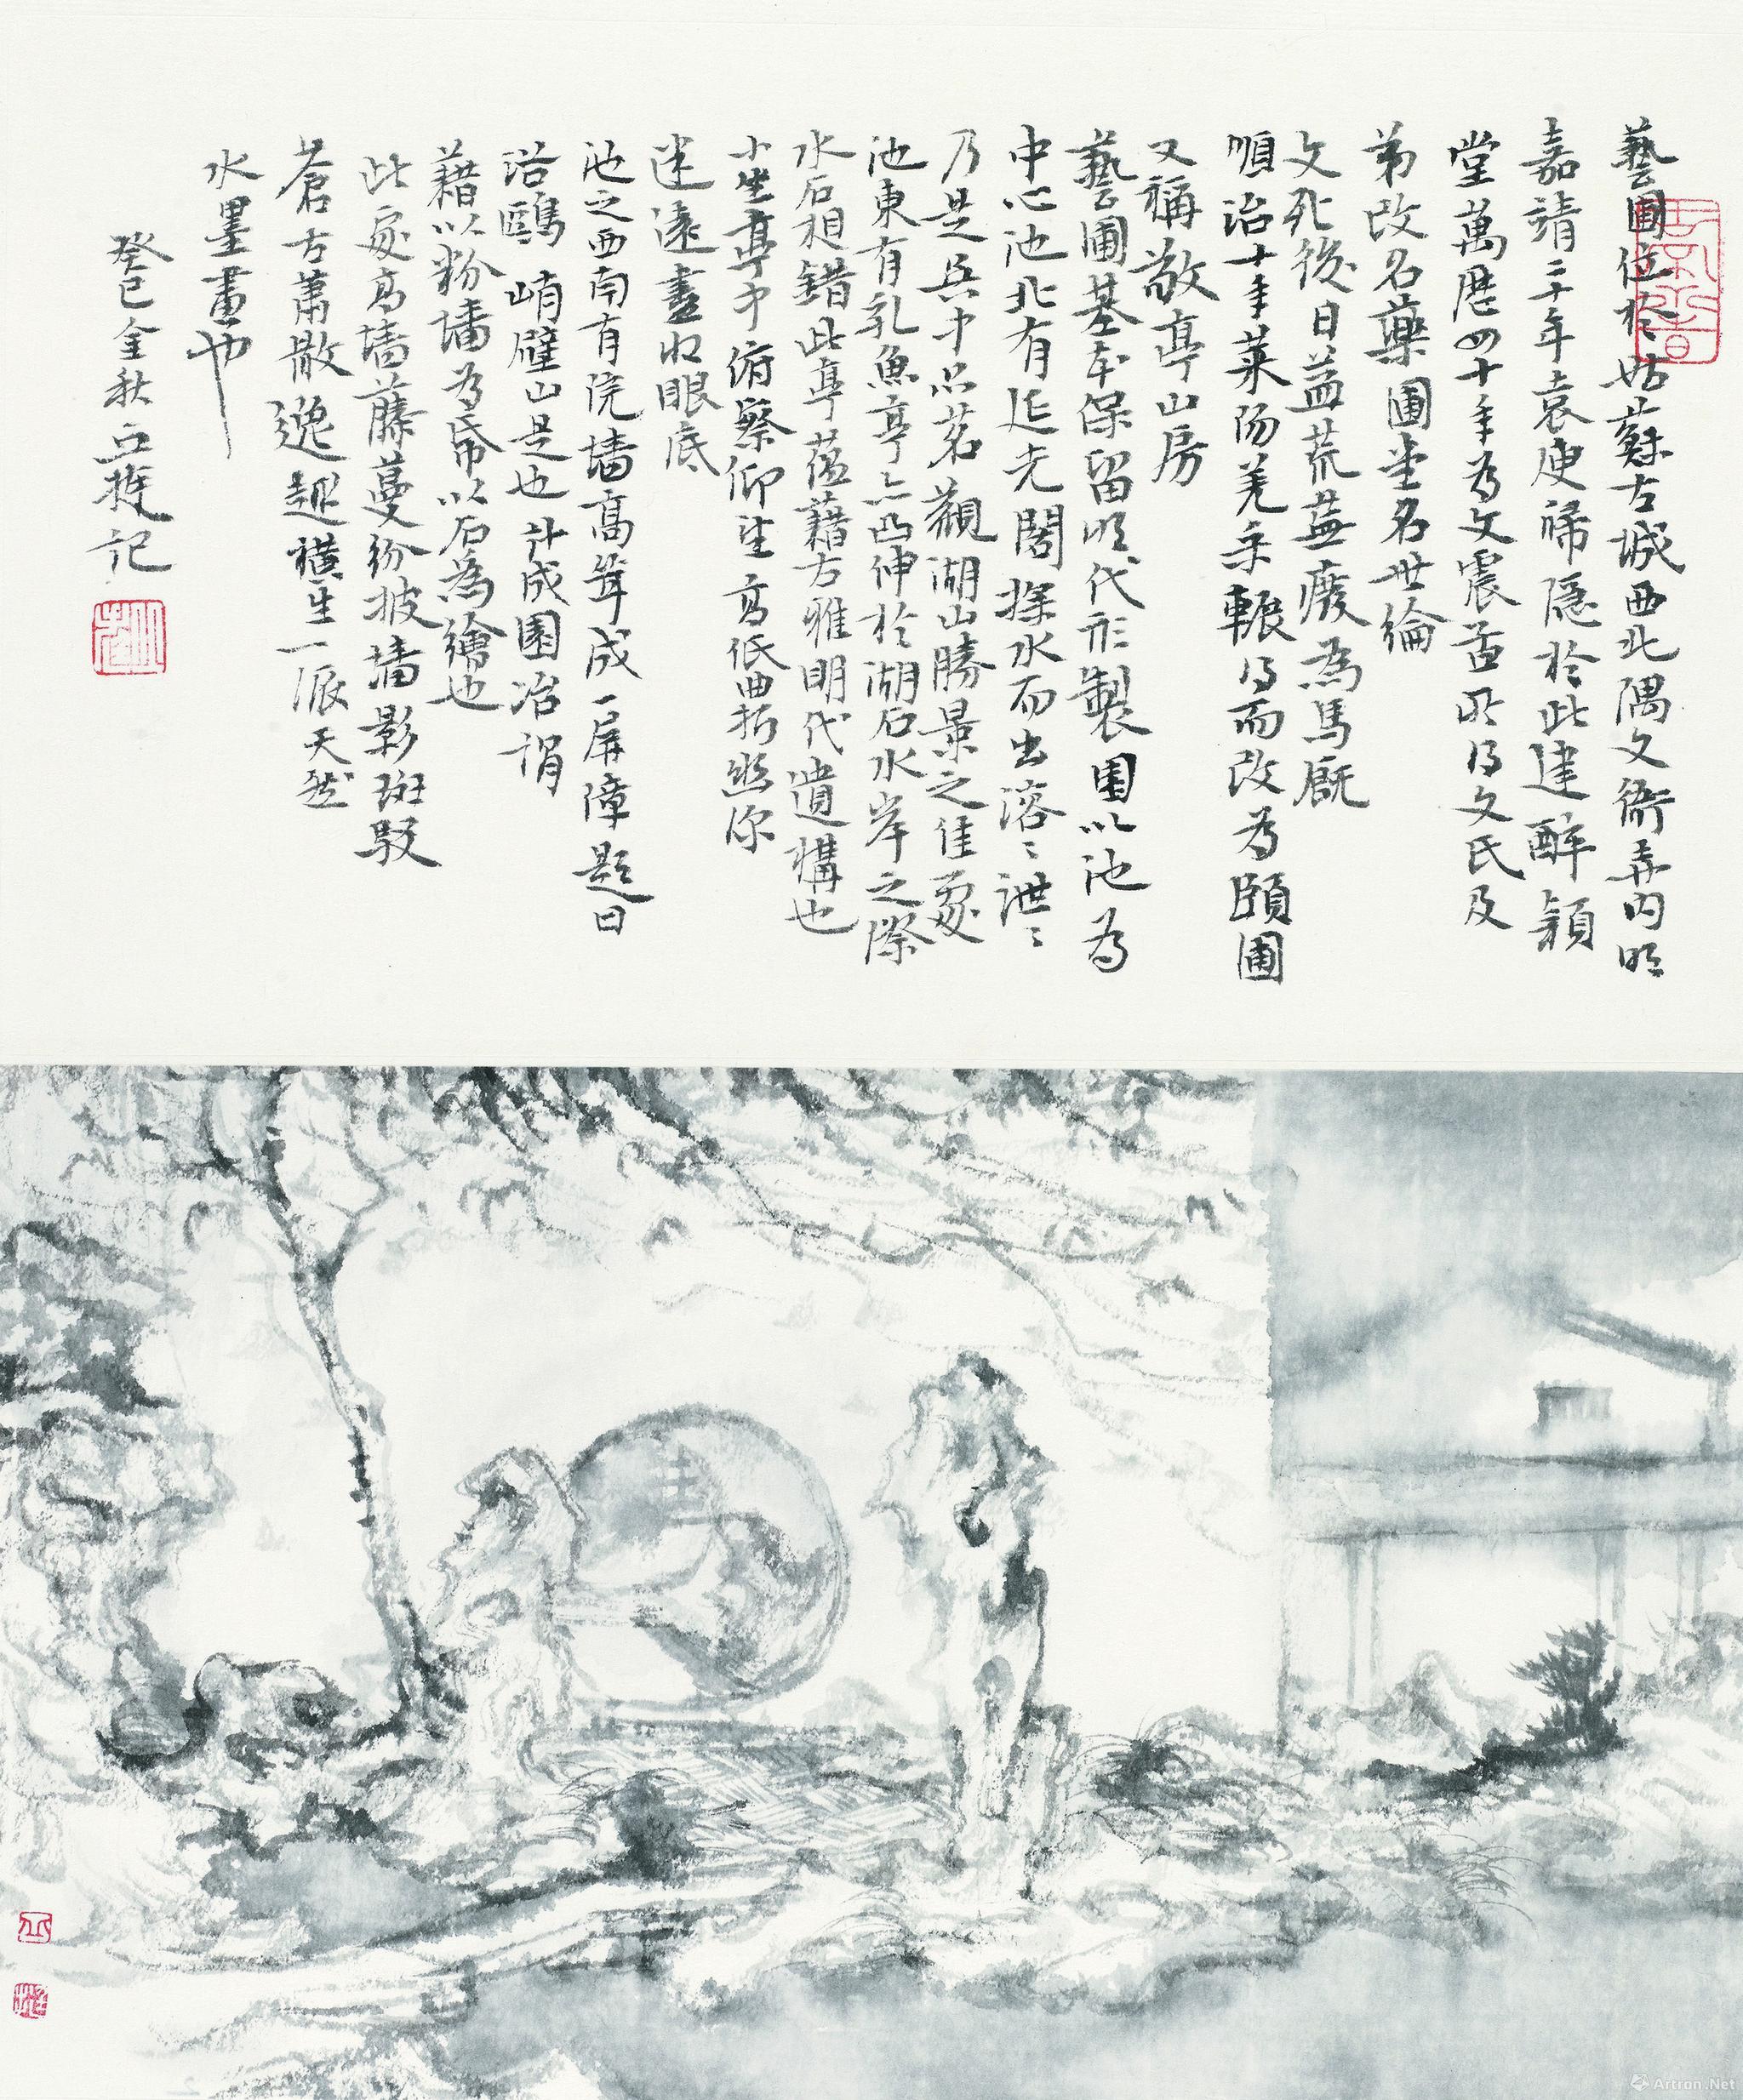 藝圃位於姑蘇古城西北隅文衙弄內明
嘉靖二十年袁庚歸隱於此建醉穎
堂萬歷四十年為文震孟所得文氏及
弟改名藥圃堂名世綸
文死後日益荒蕪廢為馬厩
順治十年萊陽姜采輾得而改為頤圃
又稱敬亭山房
藝圃基本保留明代形製園以池為
中心池北有延光閣探水而出溶溶泄泄
乃是其中品茗觀湖山勝景之佳處
池東有乳魚亭亦凸伸於湖石水岸之際
水石相錯此亭蘊藉古雅明代遺構也
小坐亭中俯察仰望高低曲折幽深
迷遠盡收眼底
池之西南有院墻高聳成一屏障題曰
浴鷗 峭壁山是也計成園冶謂
藉以粉墻為帋以石為繪也
此處高墻藤蔓紛披墻影斑駁
蒼古蕭散逸趣橫生一派天然
水墨畫也
癸巳金秋 記
Artron.Net